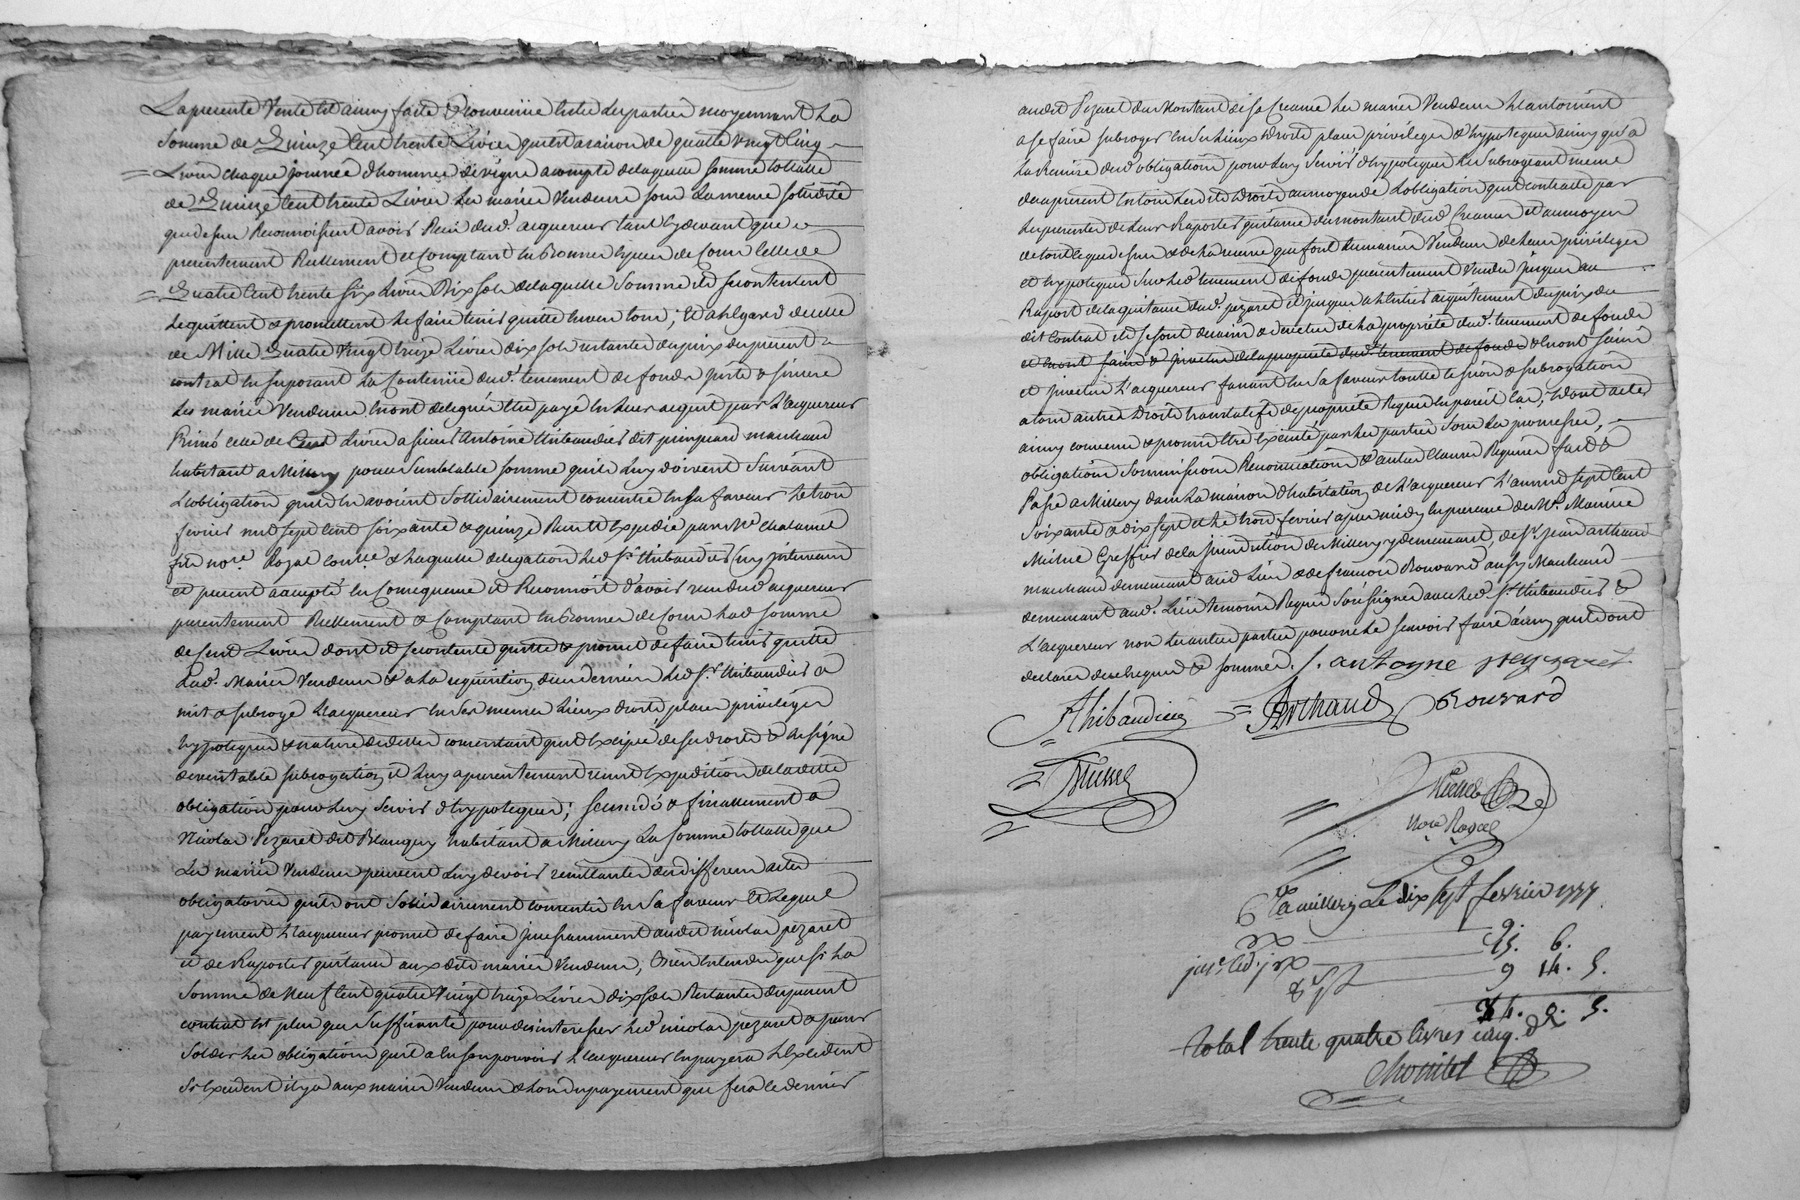 La presente Vente est ainsy faite & Convenüe entre les parties moyennant La
Somme de Quinze Cent trente Livres quiest araison de quatre Vingt Cinq
Livres chaque journée d'hommée de vigne acompte de laquelle somme tottalle
de Quinze Cent trente Livres Les mariés Vendeurs sous La meme solidité
que dessus Reconnoissent avoir Reçu dud. acquereur tant cy devant que
presentement Reellement et Comptant en Bonnes especes de Cour Celle de
Quatre Cent trente six Livres Dix sols de laquelle Somme ils se contentent
Le quittent & promettent Le faire tenir quitte envers tous; et a l'Egard de celle
de Mille Quatre Vingt treize Livres dix sols restantes du prix du present
contrat en suposant La Contenüe dud. tenement de fonds juste & sincere
Les mariés Vendeurs en ont delegué etre payé en Leur acquit par L'acquereur
Primó celle de Cent Livres a sieur Antoine Thibaudier dit pinquard marchand
habitant a Millery pour semblable somme qu'ils Luy doivent Suivant
L'obligation qu'ils en avoient Sollidairement consentie en sa faveur Le trois
fevrier mil sept cent soixante & quinze Recüe & Expediée par Me Chatannet
not.re Royal & Laquelle delegation Led. Sr. Thibaudier icy intervenant
et present a accepté en Consequence il Reconnoit d'avoir reçu dud. acquereur
presentement Reellement & Comptant en Bonnes de Cour Lad. somme
de Cent Livres dont il se contente quitte & promet de faire tenir quitte
Lesd. Mariés Vendeurs & a La requisition de ces derniers Led. Sr. Thibaudier a
mis & subrogé L'acquereur en ses memes Lieux droits place privileges
hypoteques & nature d'icelles consentant qu'il Excipe de ses droits & En signe
de veritable subrogation il Luy a presentement remis Expedition de la ditte
obligation pour Luy Servir d'hypoteque; secundó & finallement a
Nicolas Pezaret dit Blanguy habitant a Millery La somme tottalle que
Les mariés Vendeurs peuvent Luy devoir resultante des differens actes
obligatoires qu'ils ont Solidairement consentis en Sa faveur Et Lequel
payement L'acquereur promet de faire Incessamment audit nicolas pezaret
et de Raporter quittance aux dits mariés Vendeurs, Bien Entendu que si La
Somme de Neuf Cent quatre Vingt treize Livres dix sols Restantes du present
contrat Est plus que Suffisante pour desinteresser Led. nicolas pezaret & pour
Solder Les obligations qu'il a en son pouvoir L'acquereur en payera L'Excedent
Si Excedent il y a aux mariés Vendeurs & Lors du payement que fera ce dernier
audit Pezaret du Montant de sa Creance Les mariés Vendeurs L'autorisent
a se faire subroger en Ses Lieux Droits place privileges & hypoteques ainsy qu'a
La Remise desd. obligations pour Luy Servir d'hypoteque Le subrogeant meme
des apresent en tous Lesdits Droits au moyen de L'obligation qu'il contracte par
Les presentes de Leur Raporter quittance du montant desd. Creances et au moyen
de tout ce que dessus & de La reserve que font Les mariés Vendeurs de Leurs privileges
et hypoteques Sur Led. tenement de fonds presentement Vendu jusques au
Raport de la quittance dud. pezaret et jusques a L'entier acquittement du prix du
dit Contrat ils se sont demis & devetus de La propriété dud. tenement de fonds
et En ont saisi & investi de la propriété dud. tenement de fonds & En ont saisi
et investi L'acquereur faisant En Sa faveur toutte cession & subrogation
a tous autres Droits translatifs de propriété Requis En pareil Cas; Dont acte
ainsy convenu & promis etre Executé par Les parties Sous Les promesses,
obligations Soumissions Renonciations & autres Clauses Requises fait &
Passé a Millery dans La maison d'habitation de L'acquereur L'an mil sept Cent
Soixante & dix sept et Le trois fevrier apres midy En presence de Me. Maurice
Michel Greffier de la jurisdiction de Millery y demeurant, de Sr. Jean arthaud
marchand demeurant aud. Lieu & de françois Bouvard aussy Marchand
demeurant aud. Lieu temoins Requis Soussignés avec Led. Sr. Thibaudier &
L'acquereur non Les autres parties pour ne Le scavoir faire ainsy qu'ils ont
declaré de ce Enquis & sommés. J. antoyne peyzaret
Thibaudier Arthaud Bouvard
Michel
Not.re Royal
C.lé a millery Le dix sept fevrier 1777.
9.
15. 6.
9 14. 5.
34. 0. 5.
total trente quatre livres cinq. d